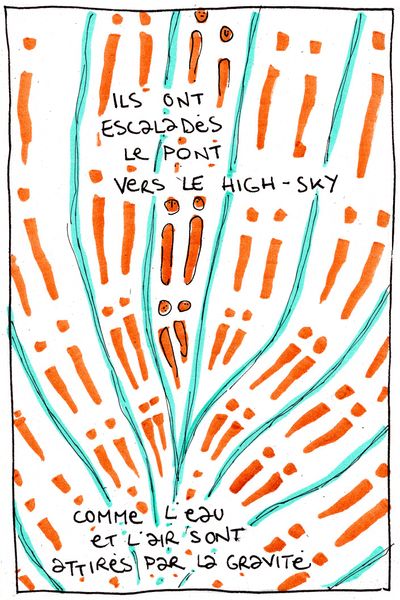 ILS ONT
ESCALADÉS
LE PONT
VERS LE HIGH-SKY
COMME L'EAU
ET L'AIR SONT
ATTIRÉS PAR LA GRAVITÉ